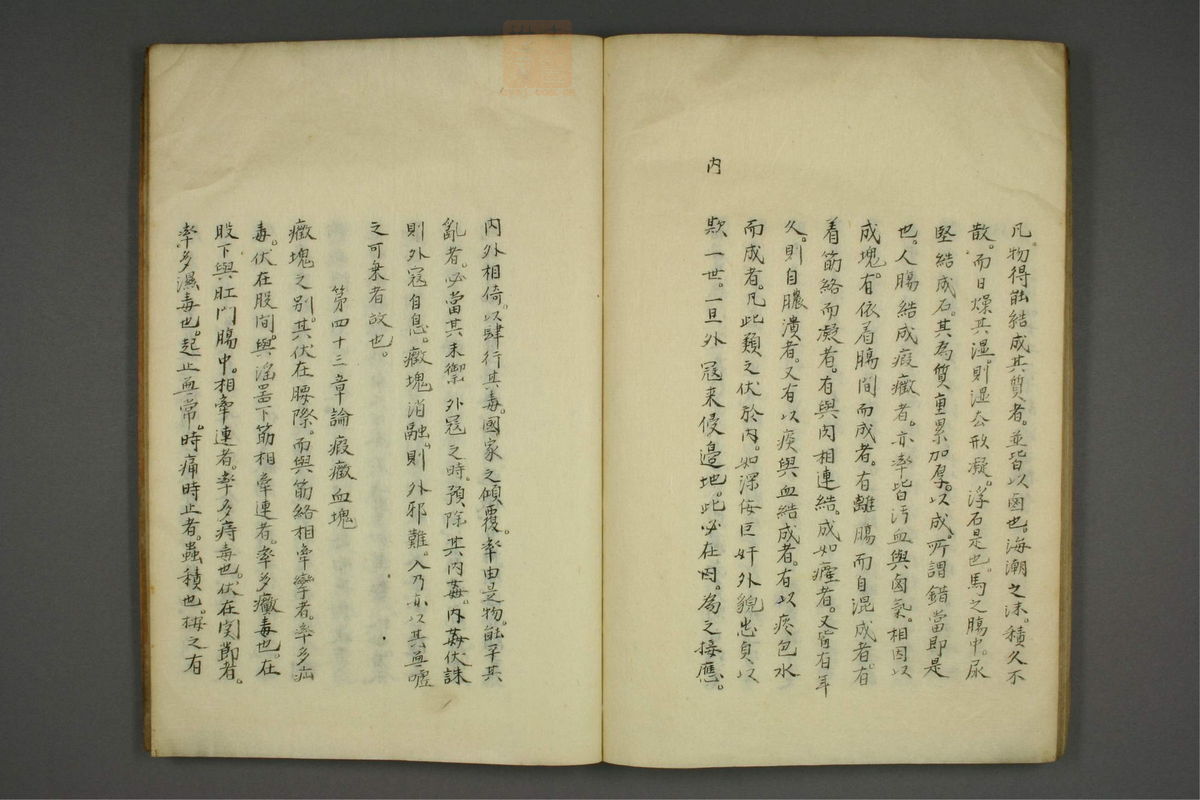 凡。物得能結成其質者。並皆以鹵也。海潮之沫。積久不
散。而日燥其濕。則湿去形凝。浮石是也。馬之腸中。尿
堅結成石。其為質重累加厚。以成。所謂錯當即是
也。人腸結成瘕癥者。亦率皆汚血與鹵氣。相因以
成塊。有依着腸間而成者。有離腸而自混成者有
着筋絡而凝者。有與肉相連結。成如癭者。又有年
久。則自膿潰者。又有以痰與血結成者。有以痰包水
而成者。凡此類之伏於內。如深佞巨奸外貌忠貞以
欺一世。一旦外寇来侵邉地。此必在內。為之接應。
内
内外相倚。以肆行其毒。國家之傾覆。率由是物。能平其
亂者。必當其未禦外寇之時。預除其内姦。内姦伏誅
則外寇自息。癥塊消融。則外邪難。入乃亦以其無嘘
之可乗者故也。
第四十三章論瘕癥血塊
癥塊之別。其伏在腰際。而與筋絡相牽攣者。率多疝
毒。伏在股間。與滛噐下筋相牽連者。率多黴毒也。在
股下與肛門腸中。相牽連者。率多痔毒也。伏在関節者。
率多濕毒也。起止無常。時痛時止者。蟲積也。按之有